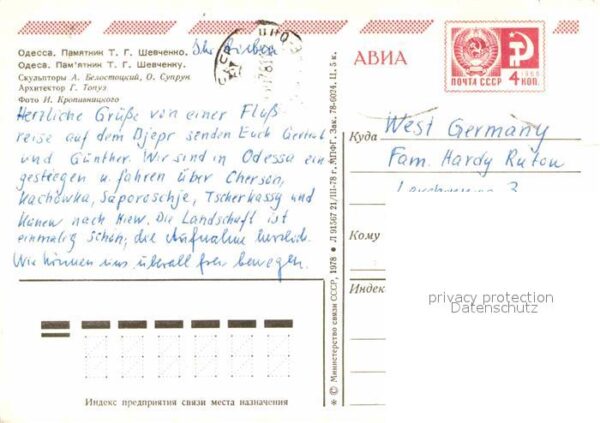 Одесса. Памятник Т. Г. Шевченко.
Одеса. Пам'ятник Т. Г. Шевченку.
Скульпторы А. Белостоцкий, О. Супрун
Архитектор Г. Топуз
Фото И. Кропивницкого
Ihr Lieben
Herzliche Grüße von einer Fluß
reise auf dem Djepr senden Euch Gertrud
und Günther. Wir sind in Odessa ein
gestiegen u. fahren über Cherson,
Kachowka, Saporoschje, Tscherkassy und
Kanew nach Kiew. Die Landschaft ist
einmalig schön, die Aufnahme herzlich.
Wir können uns überall frei bewegen.
Индекс предприятия связи места назначения
* © Министерство связи СССР, 1978 ● Л 91567 21/III-78 г. МПФГ. Зак. 78-6024. Ц. 5 к.
АВИА
ПОЧТА СССР
4 КОП.
1966
Куда
West Germany
Fam. Hardy
Кому
Индек
privacy protection
Datenschutz